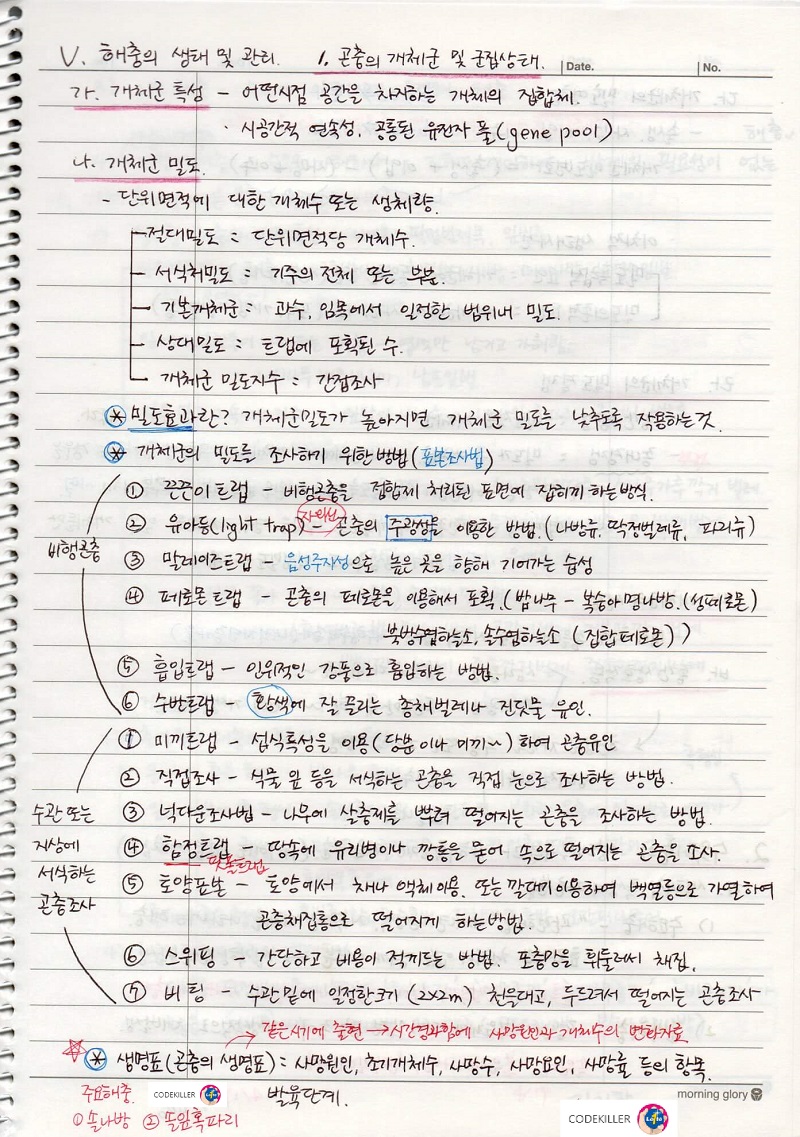 V. 해충의 생태 및 관리. 1. 곤충의 개체군 및 군집상태. Date. No.
가. 개체군 특성 - 어떤시점 공간을 차지하는 개체의 집합체.
· 시공간적 연속성, 공통된 유전자 풀(gene pool)
나. 개체군 밀도.
- 단위면적에 대한 개체수 또는 생체량.
절대밀도 = 단위면적당 개체수.
서식처밀도 = 기주의 전체 또는 부분.
기본개체군 = 과수, 임목에서 일정한 범위내 밀도.
상대밀도 = 트랩에 포획된 수.
개체군 밀도지수 = 간접조사
* 밀도효과란? 개체군밀도가 높아지면 개체군 밀도를 낮추도록 작용하는것.
* 개체군의 밀도를 조사하기 위한방법(표본조사법)
비행곤충
① 끈끈이 트랩 - 비행곤충을 접합제 처리된 표면에 잡히게 하는방식.
자외선
② 유아등(light trap) - 곤충의 주광성을 이용한 방법.(나방류, 딱정벌레류, 파리류)
③ 말레이즈트랩 - 음성주지성으로 높은 곳을 향해 기어가는 습성
④ 페로몬트랩 - 곤충의 페로몬을 이용해서 포획.(밤나무 - 복숭아명나방.(성페로몬)
북방수염하늘소, 솔수염하늘소 (집합페로몬))
⑤ 흡입트랩 - 인위적인 강풍으로 흡입하는 방법.
⑥ 수반트랩 - 황색에 잘 끌리는 총채벌레나 진딧물 유인.
수관 또는
지상에
서식하는
곤충조사
① 미끼트랩 - 섭식특성을 이용(당분이나 미끼~)하여 곤충유인
② 직접조사 - 식물 잎 등을 서식하는 곤충을 직접 눈으로 조사하는 방법.
③ 넉다운조사법 - 나무에 살충제를 뿌려 떨어지는 곤충을 조사하는 방법.
④ 함정트랩 - 땅속에 유리병이나 깡통을 묻어 속으로 떨어지는 곤충을 조사.
핏폴트랩
⑤ 토양표본 - 토양에서 채나 액체이용. 또는 깔대기이용하여 백열등으로 가열하여
곤충채집통으로 떨어지게 하는방법.
⑥ 스위핑 - 간단하고 비용이 적게드는 방법. 포충망을 휘둘러서 채집.
⑦ 비팅 - 수관밑에 일정한크기(2x2m) 천을대고, 두드려서 떨어지는 곤충조사
같은시기에 출현 → 시간경과함에 사망원인과 개체수의 변화자료
* 생명표(곤충의 생명표) = 사망원인, 초기개체수, 사망수, 사망요인, 사망률 등의 항목.
발육단계.
주요해충.
① 솔나방 ② 솔잎혹파리
CODEKILLER
CODEKILLER
morning glory